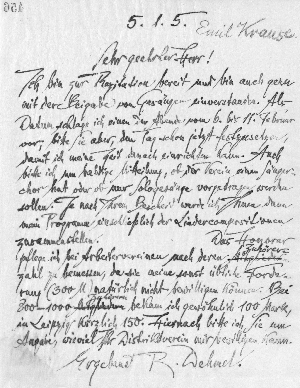 456
5.1.5.
Emil Krause
Sehr geehrter Herr!
Ich bin zur Rezitation bereit und bin auch gern
mit der Beigabe von Gesängen einverstanden. Als
Datum schlage ich einen der Abende vom 6. bis 11. Februar
vor; bitte Sie aber, den Tag schon jetzt festzusetzen,
damit ich meine Zeit danach einrichten kann. Auch
bitte ich um baldige Mitteilung, ob der Verein einen Sänger-
chor hat oder ob nur Sologesänge vorgetragen werden
sollen. Je nach Ihrem Bescheid werde ich Ihnen dann
mein Programm einschließlich der Liedercompositionen
zusammenstellen. Das Honorar
pflege ich bei Arbeitervereinen nach deren
zahl zu bemessen, da sie meine sonst übliche Forde-
rung (300 M) natürlich nicht bewilligen können. Bei
800-1000 bekam ich gewöhnlich 100 Mark,
in Leipzig kürzlich 150. Hiernach bitte ich Sie um
Angabe, wieviel Ihr Distriktverein mir bewilligen kann.
Ergebenst R. Dehmel.